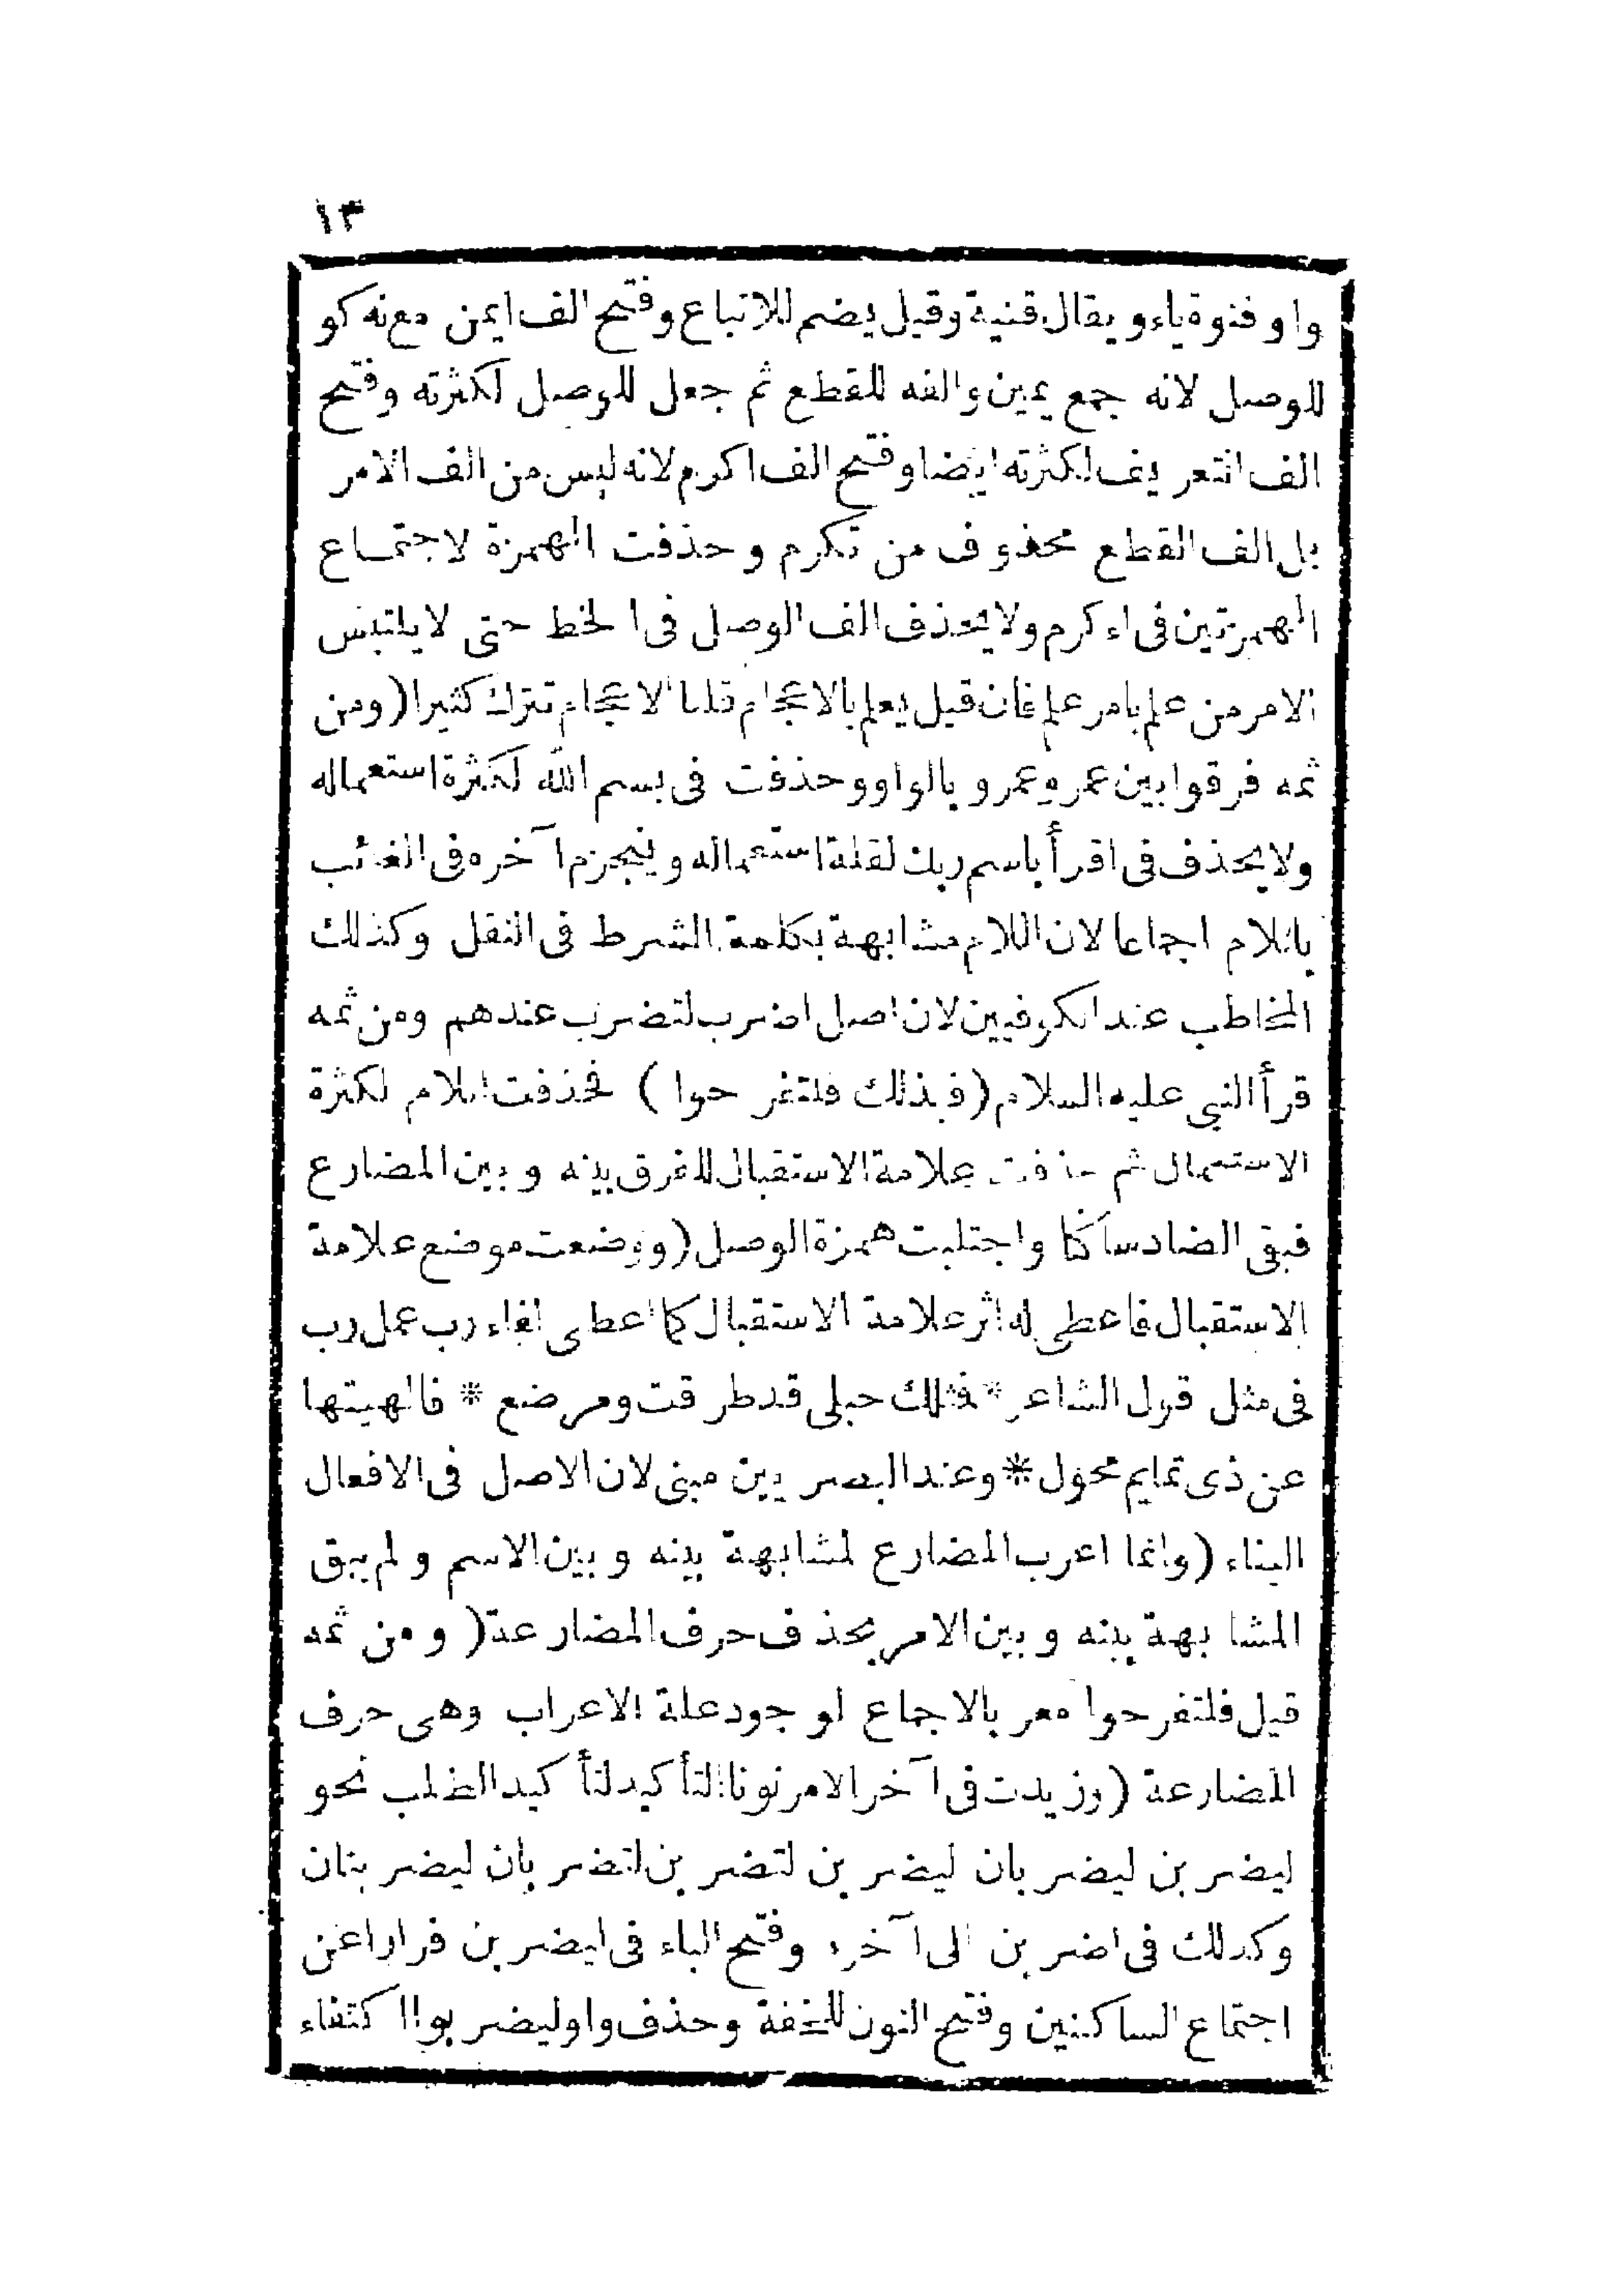 ١٣
واو قنوة ياء ويقال قنية وقيل يضم للاتباع وفتح الف ايمن مع نه كو
للوصل لانه جمع يمين والفه للقطع ثم جعل للوصل لكثرته وفتح
الف التعريف لكثرته ايضا وفتح الف اكرم لانه ليس من الف الامر
بل الف القطع محذوف من تكرم وحذفت الهمزة لاجتماع
الهمزتين فى اءكرم ولا يحذف الف الوصل فى الخط حتى لا يلتبس
الامر من علم بامر علم فان قيل يعلم بالاعجام قلنا الاعجام تترك كثيرا (ومن
ثمه فرقوا بين عمر وعمرو بالواو وحذفت فى بسم الله لكثرة استعماله
ولا يحذف فى اقرأ باسم ربك لقلة استعماله وينجزم آخره فى الغائب
باللام اجماعا لان اللام مشابهة بكلمة الشرط فى النقل وكذلك
المخاطب عند الكوفيين لان اصل اضرب لتضرب عندهم ومن ثمه
قرأ النبى عليه السلام (فبذلك فلتفرحوا) فحذفت اللام لكثرة
الاستعمال ثم حذفت علامة الاستقبال للفرق بينه وبين المضارع
فبقى الضاد ساكنا واجتلبت همزة الوصل (ووضعت موضع علامة
الاستقبال فاعطى له اثر علامة الاستقبال كما اعطى لفاء رب عمل رب
فى مثل قول الشاعر * فمثلك حبلى قد طرقت ومرضع * فالهيتها
عن ذى تمايم محول * وعند البصريين مبنى لان الاصل فى الافعال
البناء (وانما اعرب المضارع لمشابهة بينه وبين الاسم ولم يبق
المشابهة بينه وبين الامر بحذف حرف المضارعة (ومن ثمه
قيل فلتفرحوا معر بالاجماع لوجود علة الاعراب وهى حرف
المضارعة (وزيدت فى آخر الامر نونا التأكيد لتأكيد الطلب نحو
ليضربن ليضربان ليضربن لتضربن لتضربان ليضربنان
وكدلك فى اضربن الى آخره وفتح الباء فى ليضربن فرارا عن
اجتماع الساكنين وفتح النون للخفة وحذف واو ليضربوا اكتفاء